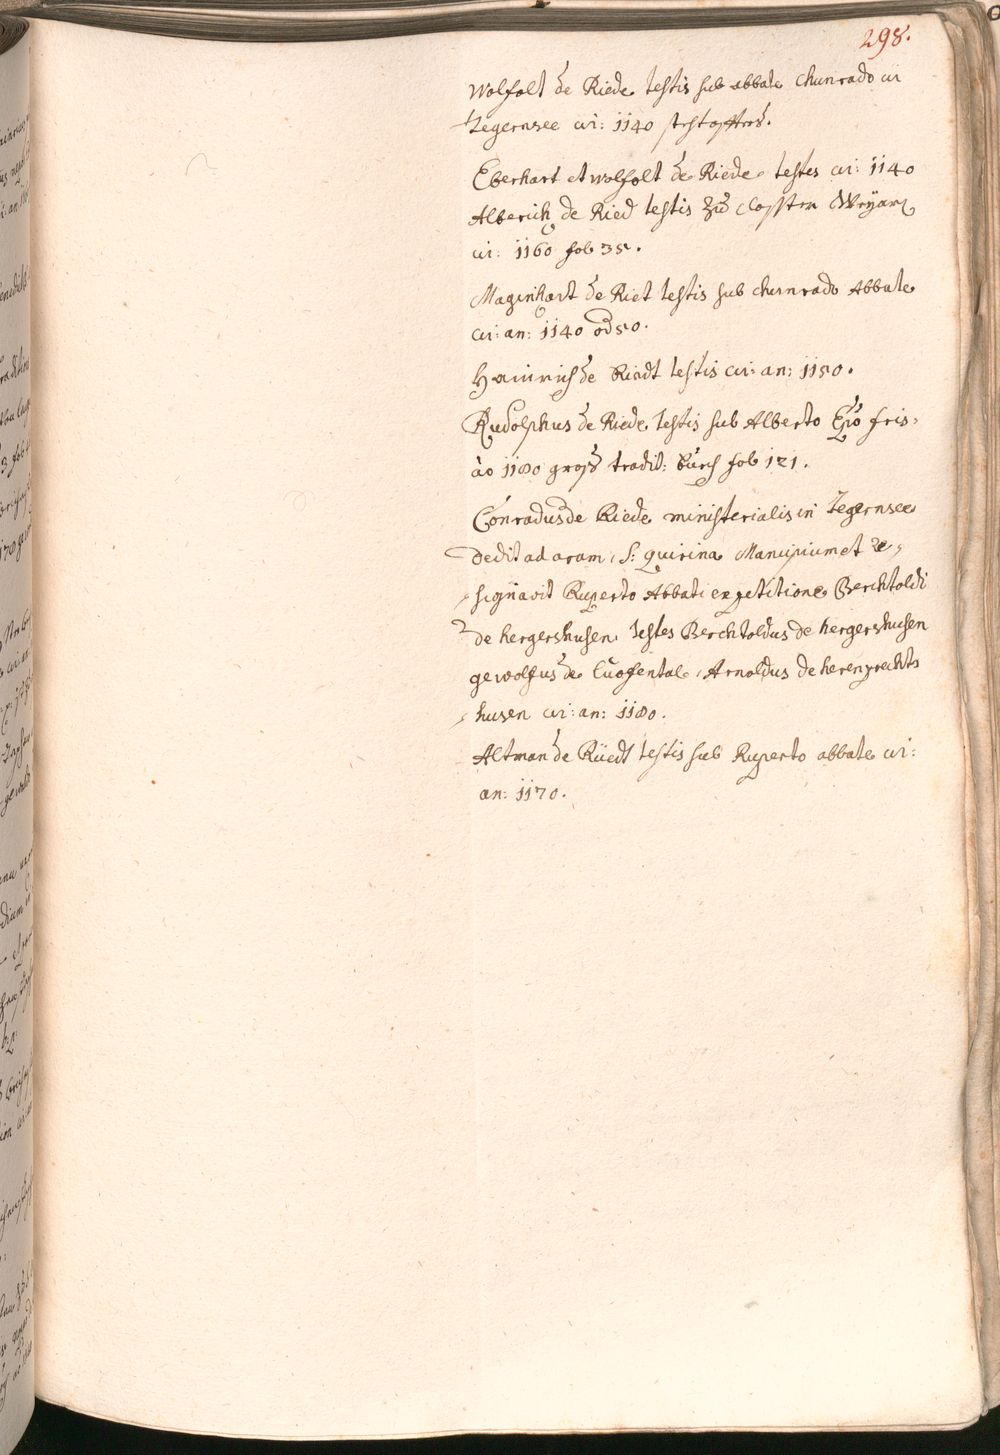 298.
Wolfolt de Riede testis sub abbate Chunrado in
Tegernsee ci: 1140
Eberhart et Wolfolt de Riede testes ci: 1140
Alberich de Ried testis zu Closster Weyarn
ci: 1160 fol 35.
Maginhart de Riet testis sub Chunrado Abbate
ci: an: 1140 od 50.
Hainrich de Riedt testis ci: an: 1150.
Rudolphus de Riede testis sub Alberto Epo fris:
ao 1180 gross tradit: buech fol 121.
Conradus de Riede ministerialis in Tegernsee
dedit ad aram S: Quirini Mancipium et re,
signavit Ruperto Abbati ex petitione Berchtoldi
de hergershusen, testes Berchtoldus de hergershusen
gewolfus de Cuofental, Arnoldus de herenprechts
husen ci: an: 1180.
Altman de Rüedt testis sub Ruperto abbate ci:
an: 1170.